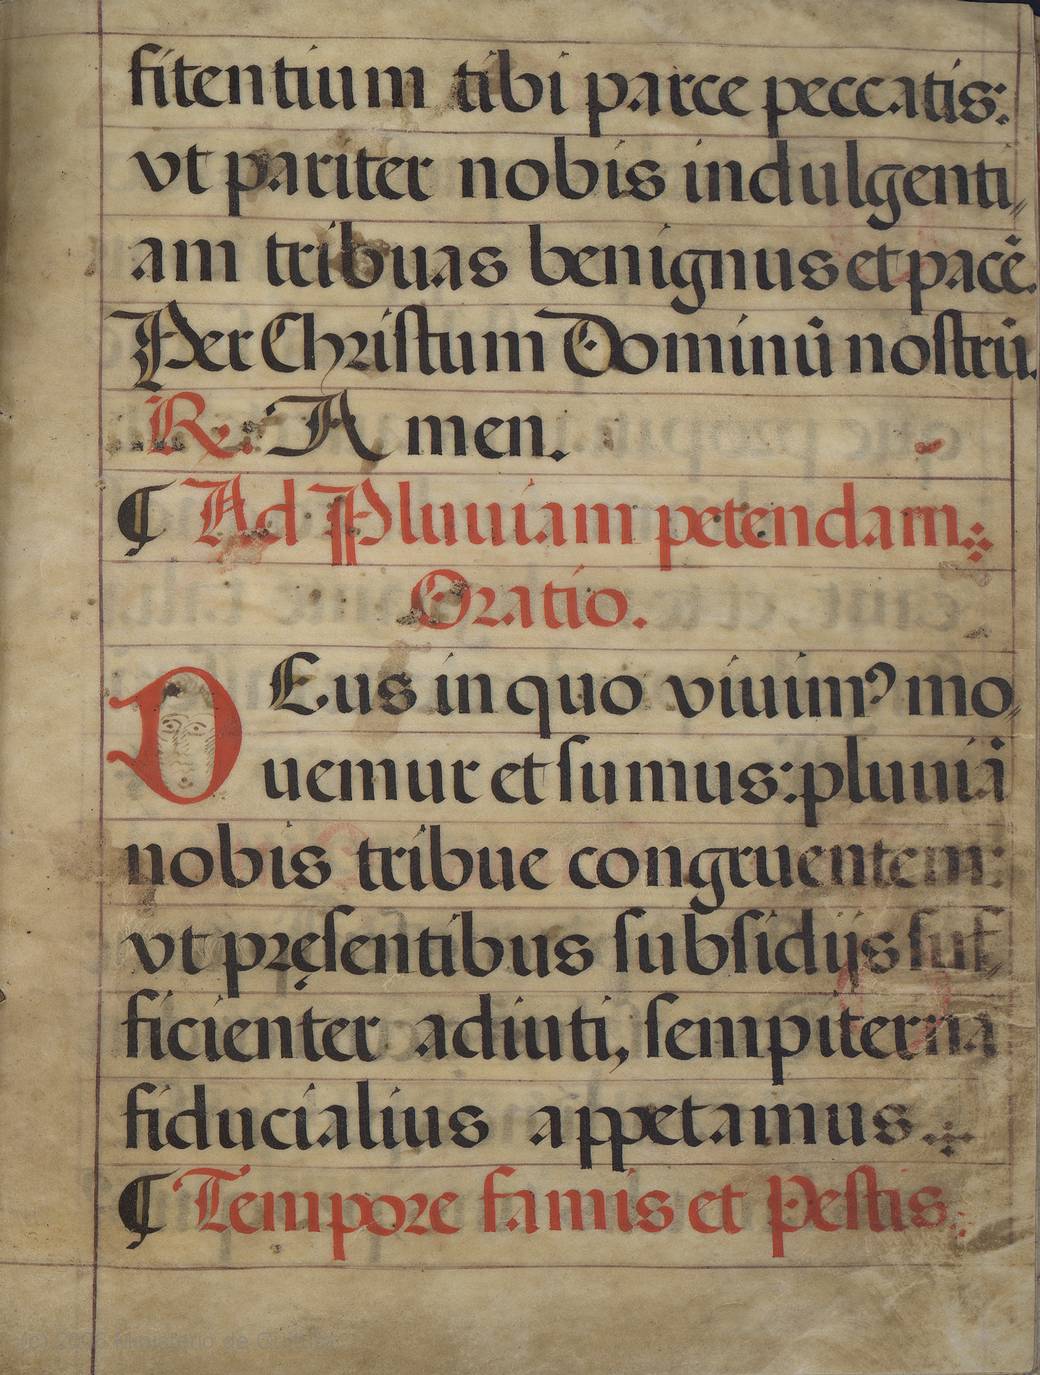 fitentium tibi parce peccatis:
vt pariter nobis indulgenti,,
am tribuas benignus et pacē.
Per Christum Dominū nostrū.
℟. Amen.
¶ Ad Pluuiam petendam
Oratio.
DEus in quo viuimꝰ mo,,
uemur et sumus: pluuiā
nobis tribue congruentem:
vt pręsentibus subsidijs suf,,
ficienter adiuti, sempiterna
fiducialius appetamus.
¶ Tempore famis et Pestis.